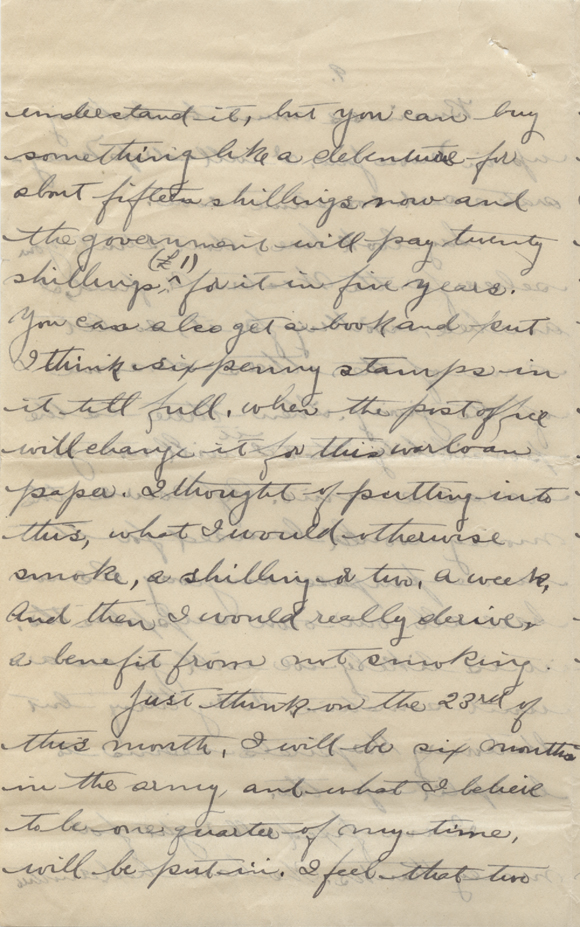 understand it, but you can buy
something like a debenture for
about fifteen shillings now and
the government will pay twenty
(£1)
shillings ^ for it in five years.
You can also get a book and put
I think six penny stamps in
it till full, when the post office
will change it for this warloan
paper. I thought of putting into
this, what I would otherwise
smoke, a shilling or two, a week,
And then I would really derive,
a benefit from not smoking.
Just think on the 23rd of
this month, I will be six months
in the army and what I believe
to be one quarter of my time,
will be put in. I feel that two